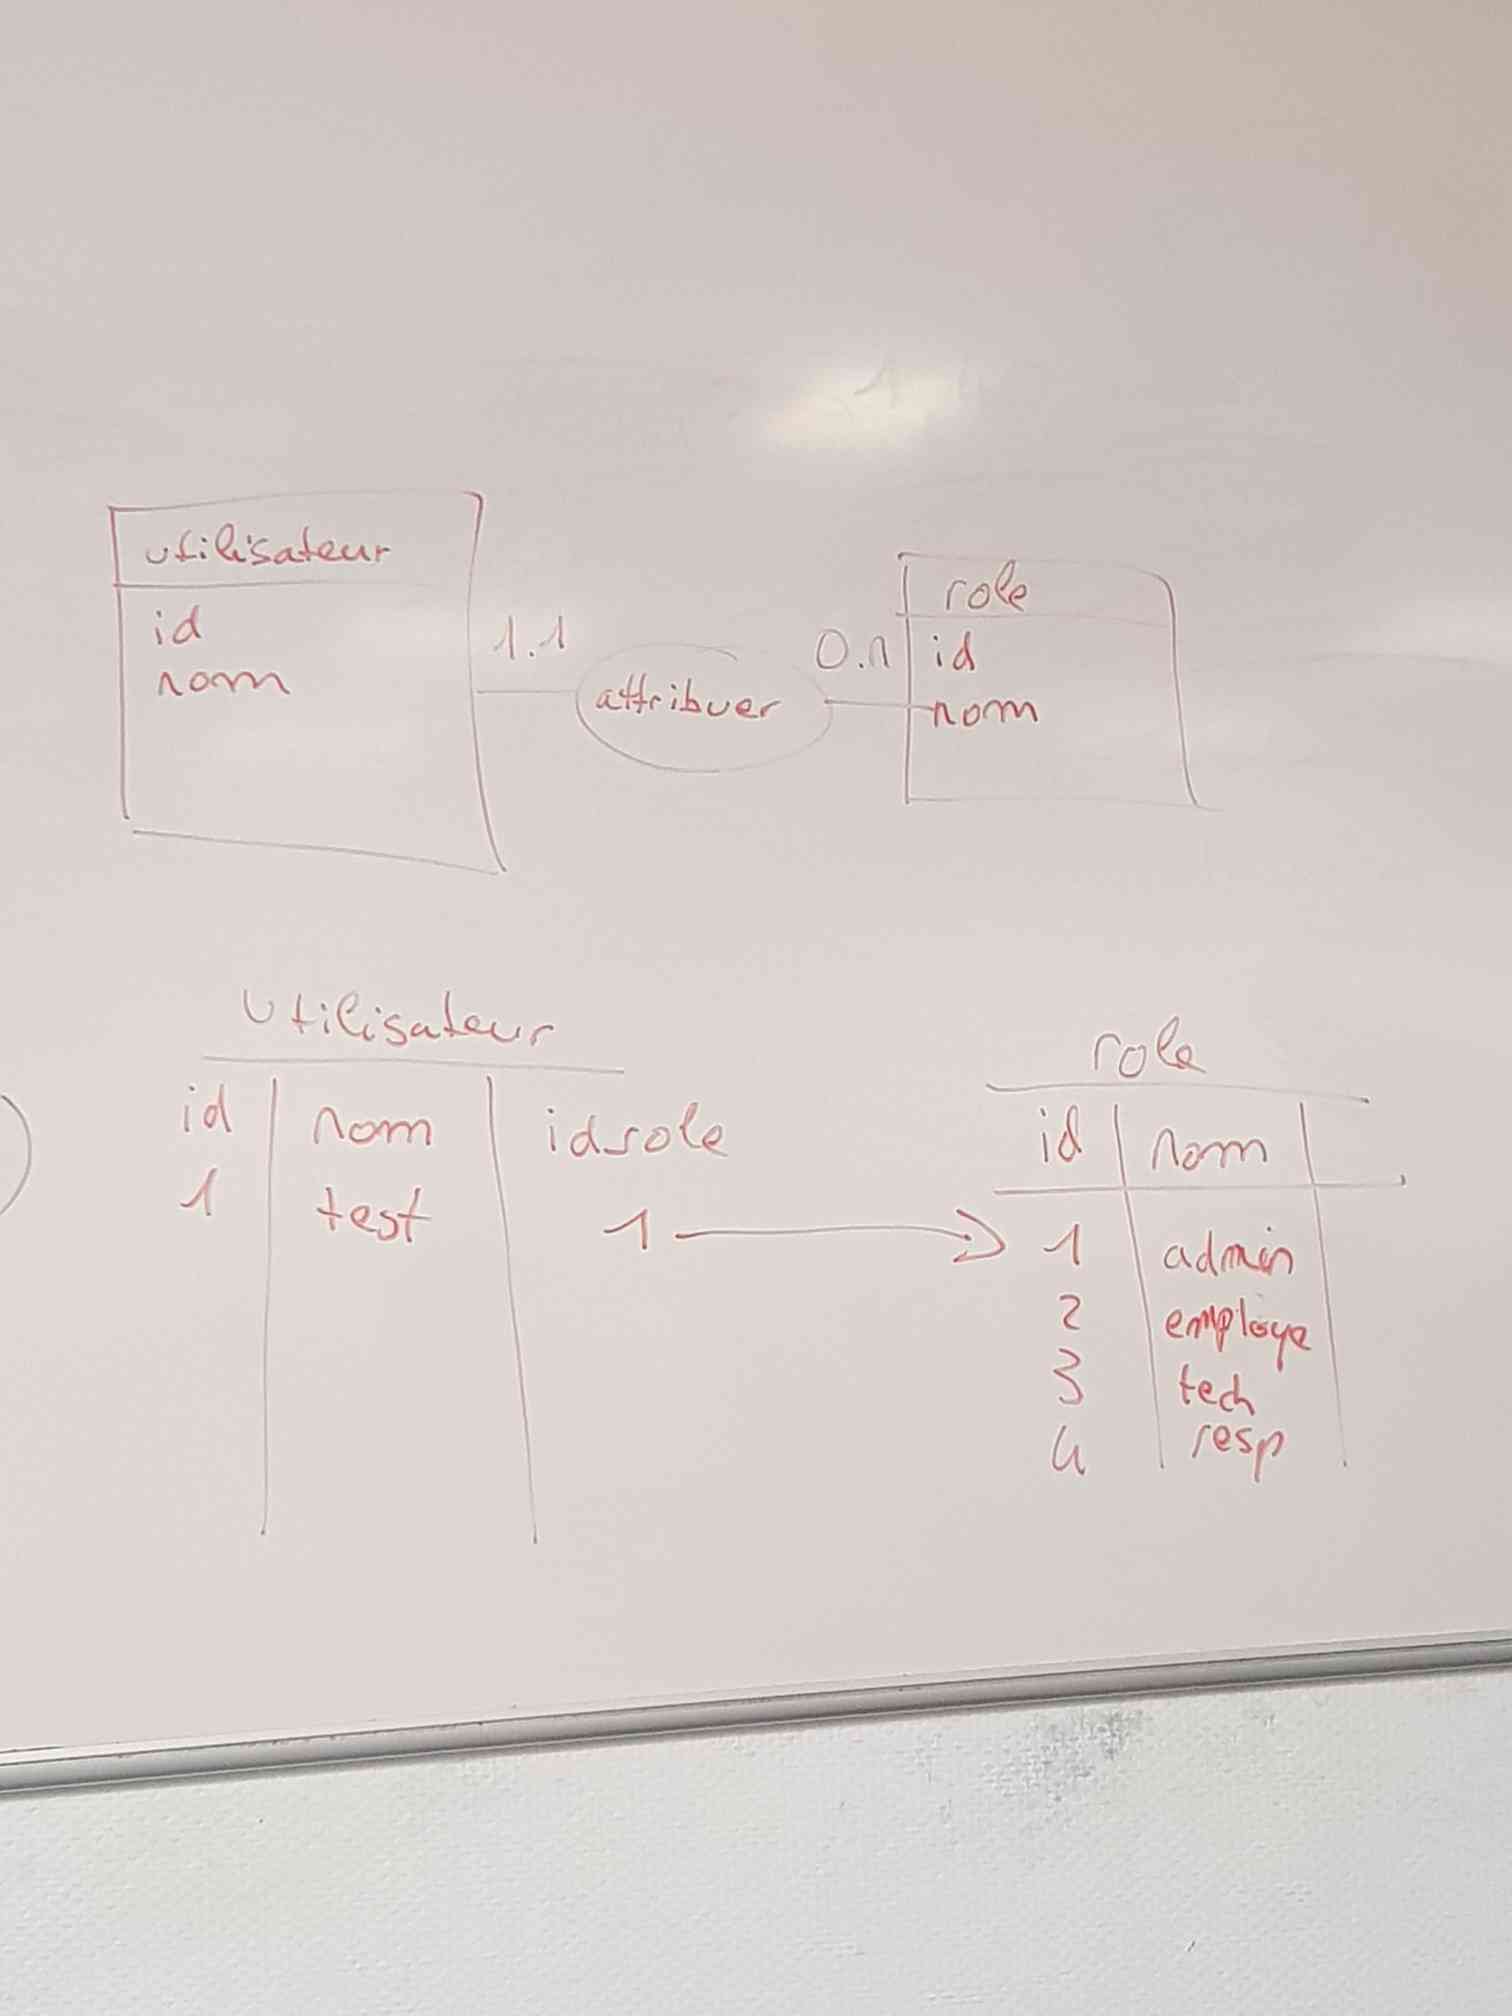 utilisateur
id
nom
1.1
attribuer
0.n
role
id
nom
utilisateur
id nom idrole
1 test 1
role
id nom
1 admin
2 employe
3 tech
4 resp